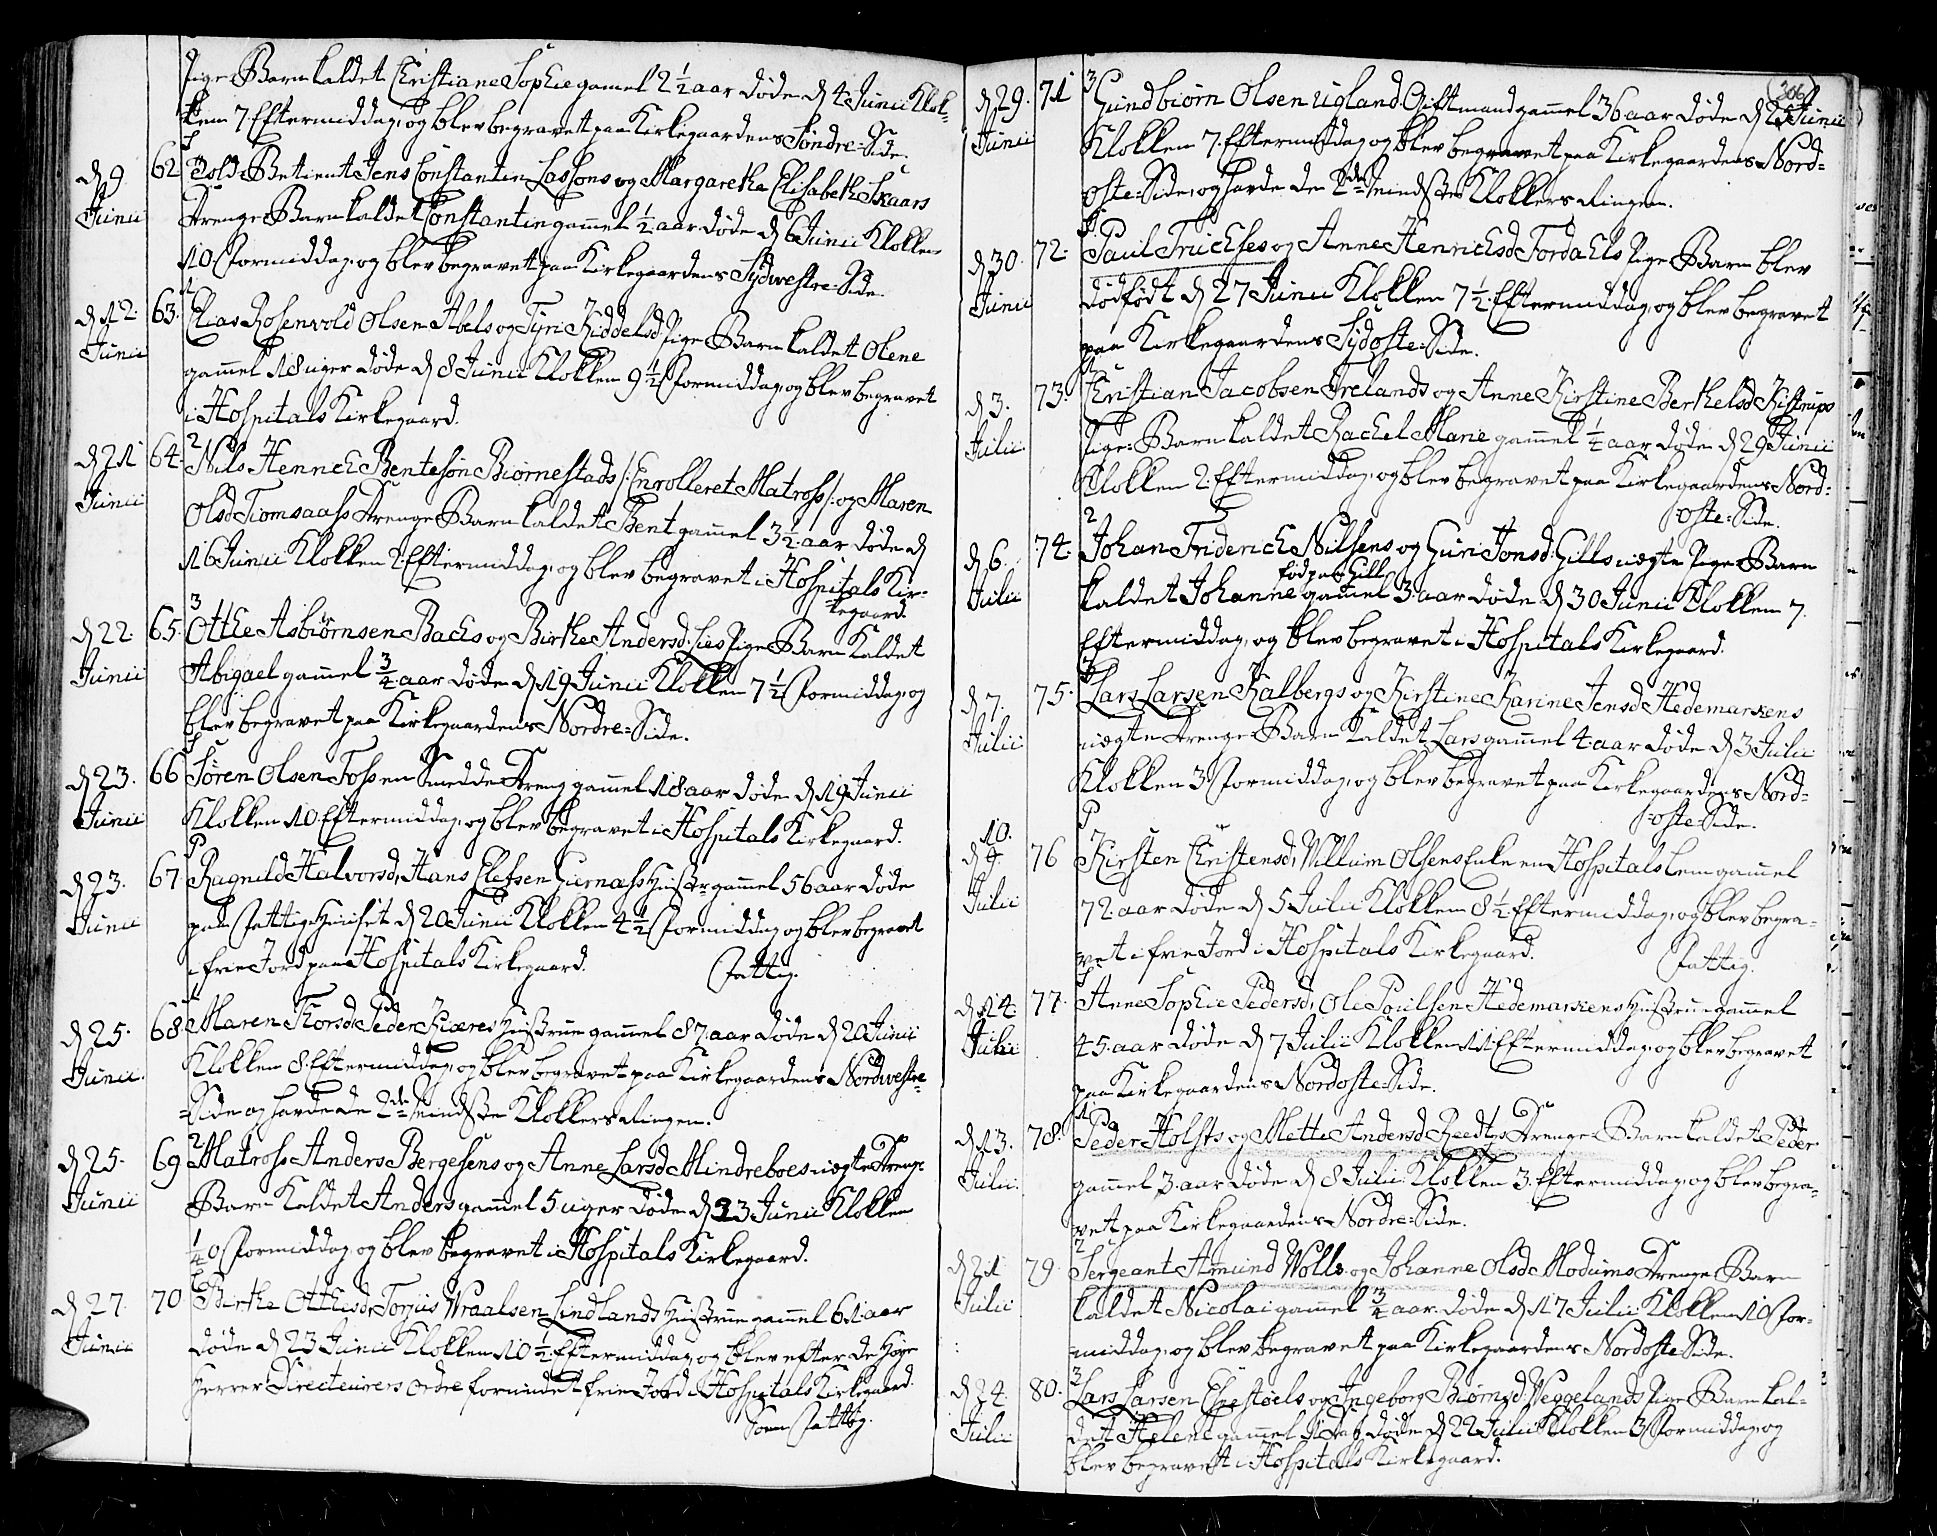 Pige Barn kaldet Christiane Sophie gamel 2 1/2 aar døde d 4 Junii Klok-
ken 7 Eftermiddag, og blev begravet paa Kirkegaardens Søndre-Side.
d 9 Junii 62 Told-Betient Jens Constantin Lassons og Margaretha Elisabeth Skaars
Drenge Barn kaldet Constantin gammel 1/2 aar døde d 6 Junii Klokken
10 Formiddag, og blev begravet paa Kirkegaardens Sydwestre-Side.
d 12. Junii 63. Elias Rosenvold Olsen Abels og Tyri Kiddelsd Pige Barn kaldet Olene
gammel 18 uger døde d 8 Junii Klokken 9 1/2 Formiddag, og blev begravet
i Hospitals Kirkegaard.
d 21 Junii 64. 2 Nils Henrich Bentesøn Biørnestads /: Enrolleret Matross :/ og Maren
Olsd Tiomsaass Drenge Barn kaldet Bent gammel 3 1/2 aar døde d
16 Junii Klokken 2 Eftermiddag, og blev begravet i Hospitals Kir-
kegaard.
d 22 Junii 65. 3 Otthe Asbiørnsen Bachs og Birthe Andersd: Lies Pige Barn Kaldet
Abigael gammel 3/4 aar døde d 19 Junii Klokken 7 1/2 Formiddag, og
blev begravet paa Kirkegaardens Nordre-Side.
d 23. Junii 66 Søren Olsen Foss en Smedde Dreng gammel 18 aar døde d 19 Junii
Klokken 10 Eftermiddag, og blev begravet i Hospitals Kirkegaard.
d 23. Junii 67 Ragnild Halvorsd, Hans Elefsen Giernæss Hustr gammel 56 aar døde
paa Fattig Huuset d 20 Junii Klokken 4 1/2 Formiddag og blev begravet
i frie Jord paa Hospitals Kirkegaard. Fattig.
d 25. Junii. 68 Maren Thorsd Peder Kiæres Hustrue gammel 87 aar døde d 20 Junii
Klokken 8 Eftermiddag, og blev begravet paa Kirkegaardens Nordwestre-
-Side og havde de 2de mindste Klokkers Ringen.
d 25. Junii 69 2 Matross Anders Bergesens og Anne Larsd Mindreboes uægte Drenge
Barn Kaldet Anders gammel 5 uger døde d 23 Junii Klokken
1/4 0 Formiddag, og blev begravet i Hospitals Kirkegaard.
d 27. Junii 70 Birthe Otthesdr Torjus Wraalsen Lindlands Hustrue gammel 61 aar
døde d 23 Junii Klokken 10 1/2 Eftermiddag, og blev efter de Høye
Herrer Directeurers Ordre forundet frie Jord i Hospitals Kirkegaard.
Som Fattig.
306
d 29. Junii 71 3 Gundbiørn Olsen Ugland Giftmand gammel 36 aar døde d 25 Junii
Klokken 7. Eftermiddag, og blev begravet paa Kirkegaardens Nord-
oste-Side, og havde de 2de mindste Klokkers Ringen.
d 30. Junii 72. Paul Truchses og Anne Henrichsd Fordahls Pige Barn blev
dødfødt d 27 Junii Klokken 7 1/2 Eftermiddag, og blev begravet
paa Kirkegaardens Sydoste-Side.
d 3. Julii. 73. Christian Jacobsen Irelands og Anne Kirstine Berthelsd Kistrups
Pige-Barn kaldet Rachel Marie gammel 1/4 aar døde d 29 Junii
Klokken 2. Eftermiddag, og blev begravet paa Kirkegaardens Nord-
oste-Side.
d 6. Julii 74. 2 Johan Friderich Nilsens og Guri Jonsd: Gills uægte Pige Barn
kaldet Johanne født paa Gill gammel 3 aar døde d 30 Junii Klokken 7.
Eftermiddag, og blev begravet i Hospitals Kirkegaard.
d 7. Julii 75. Lars Larsen Kalbergs og Kirstine Karine Jensd Hedemarkens
uægte Drenge Barn Kaldet Lars gammel 4 aar døde d 3 Julii
Klokken 3 Formiddag, og blev begravet paa Kirkegaardens Nord-
-oste-Side.
d 10. Julii 76 Kirsten Christensd, Willum Olsens Enke en Hospitals Lem gammel
72 aar døde d 5 Julii Klokken 8 1/2 Eftermiddag, og blev begra-
vet i frie Jord i Hospitals Kirkegaard. Fattig.
d 14. Julii 77. Anne Sophie Pedersd, Ole Poulsen Hedemarkens Hustrue gammel
45. aar døde d 7 Julii Klokken 11 Eftermiddag, og blev begravet
paa Kirkegaardens Nordoste-Side.
d 13. Julii. 78. Peder Holsts og Mette Andersd Reedtzs Drenge Barn kaldet Peder
gammel 3 aar døde d 8 Julii Klokken 3. Eftermiddag, og blev begra-
vet paa Kirkegaardens Nordre-Side.
d 21 Julii 79. 2 Sergeant Amund Wolls og Johanne Olsd Modums Drenge Barn
kaldet Nicolai gammel 3/4 aar døde d 17 Julii Klokken 10 For-
middag, og blev begravet paa Kirkegaardens Nordoste Side.
d 24. Julii 80. 3 Lars Larsen Egestøels og Ingeborg Biørnsd Weggelands Pige Barn kal-
det Helene gammel døde d 22 Julii Klokken 3 Formiddag, og
blev begravet i Hospitals Kirkegaard.